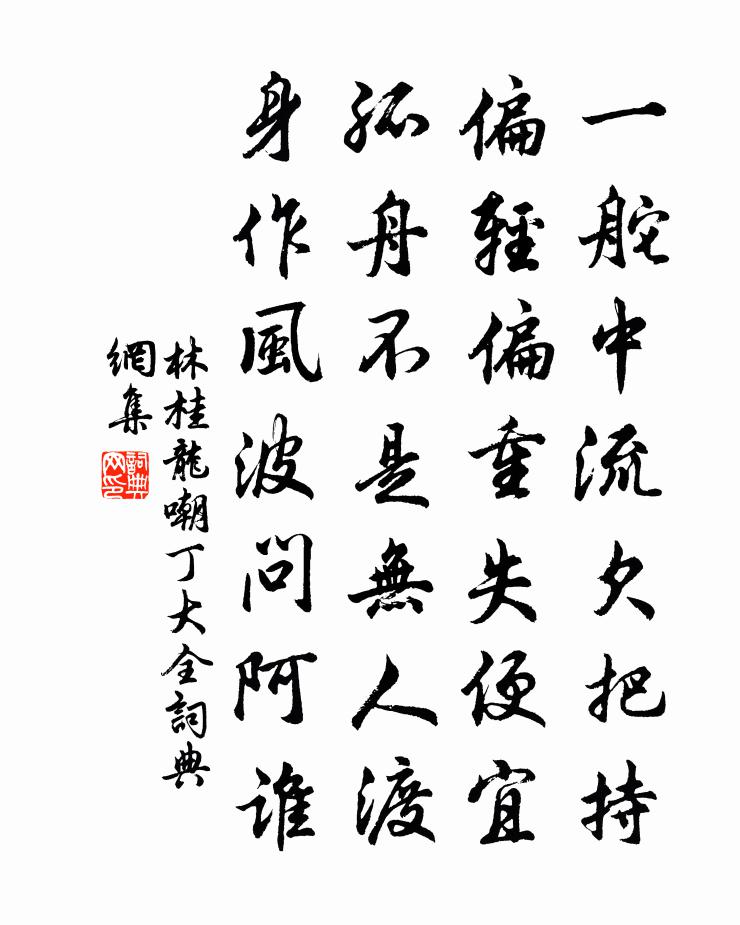 一舵中流欠把持
偏輕偏重失便宜
孤舟不是無人渡
身作風波問阿誰
林桂龍嘲丁大全詞典
網集
詞典
网印